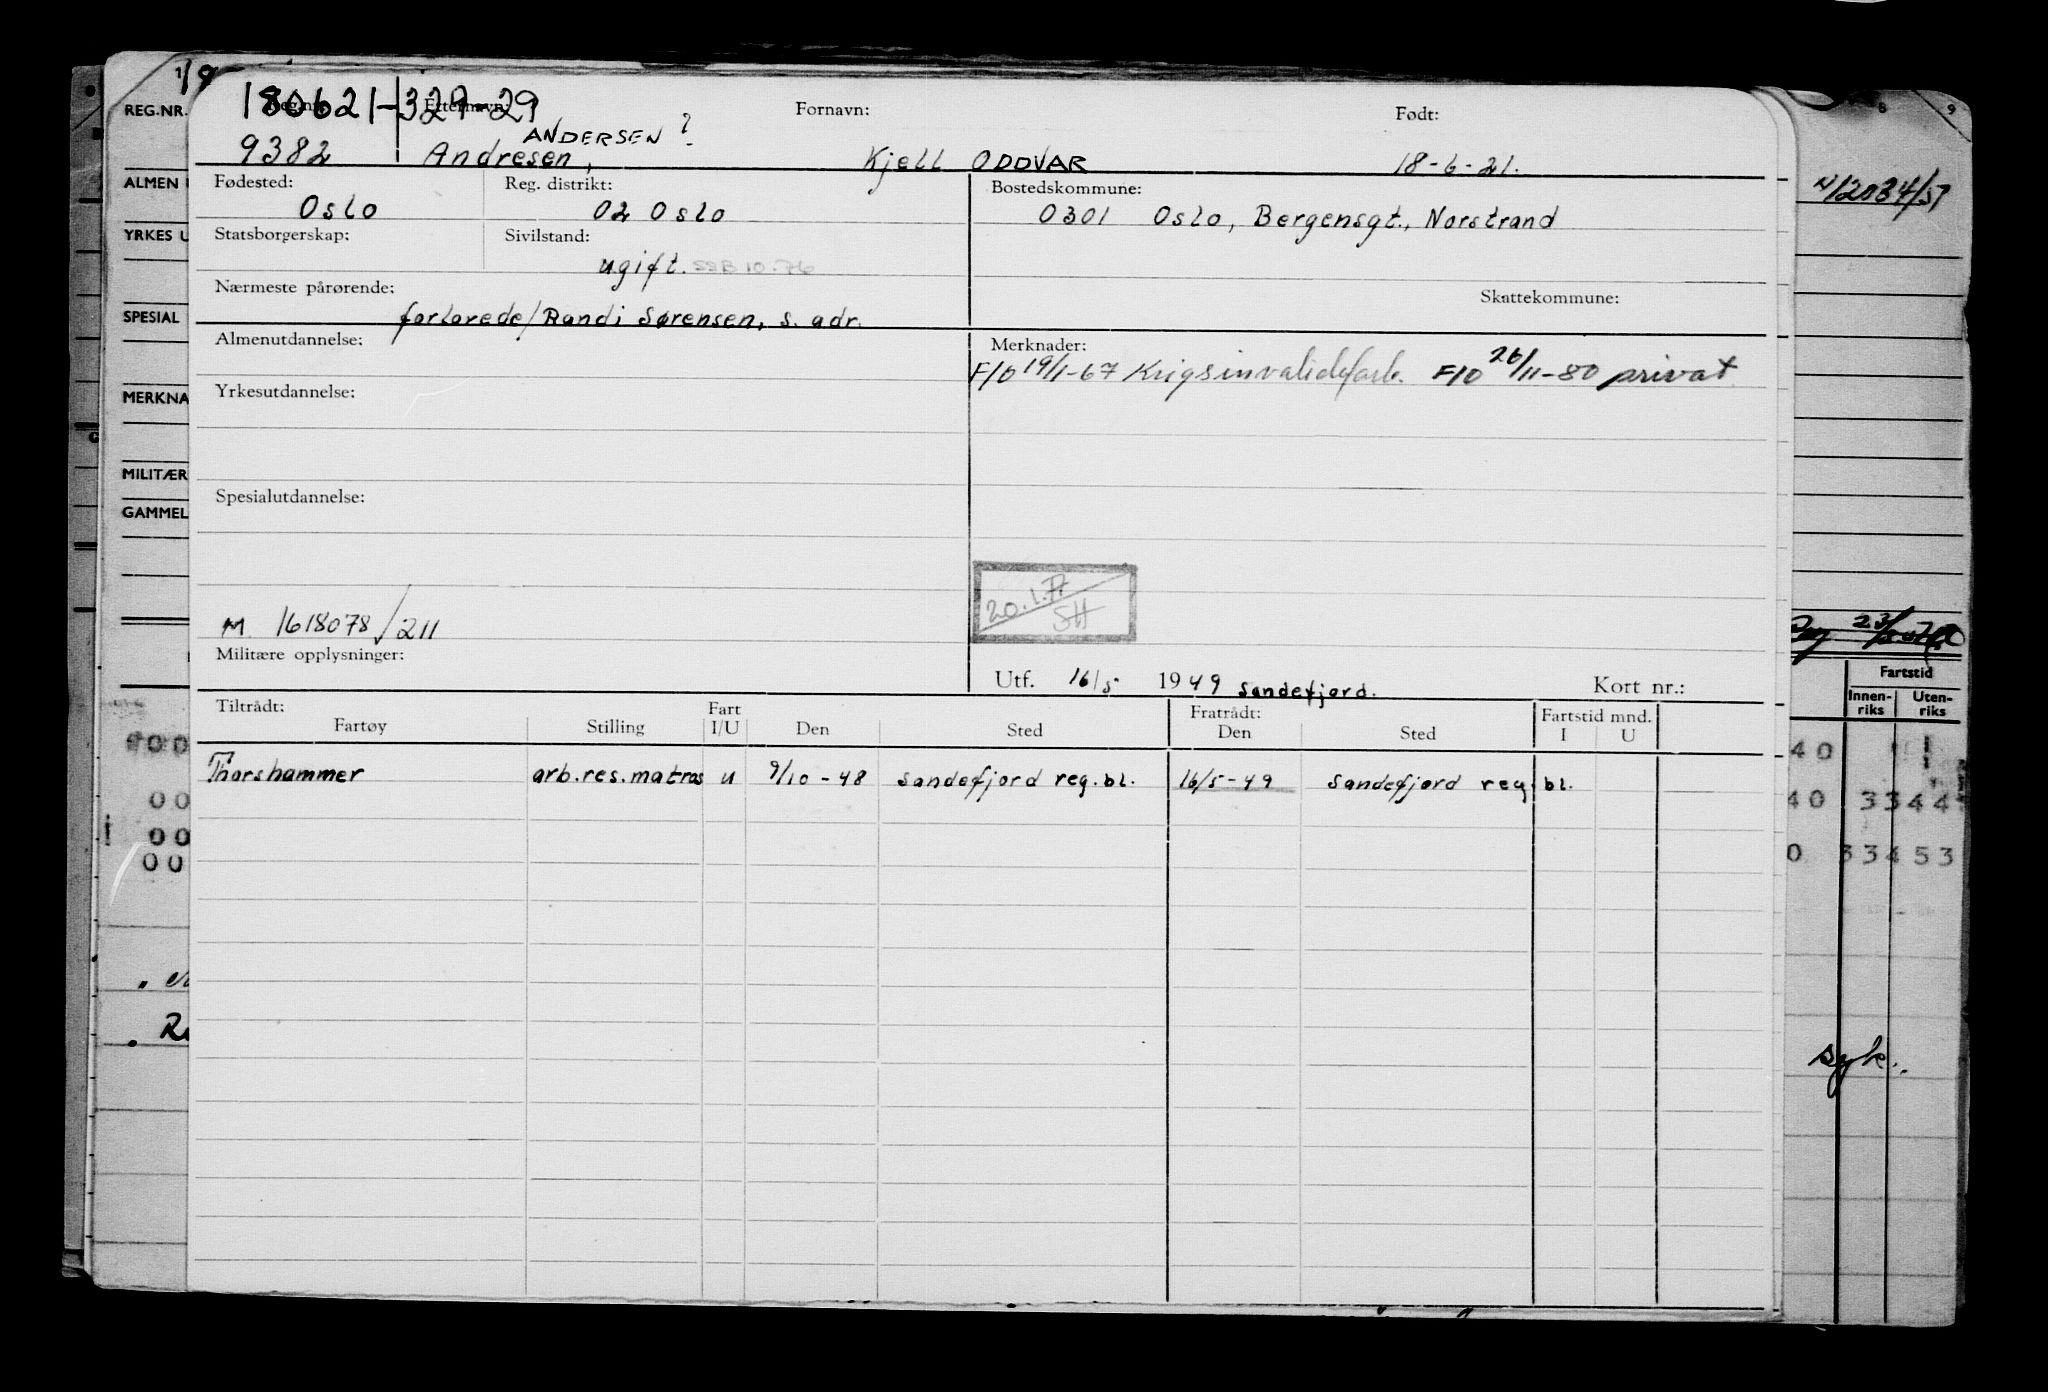 18
180621-329-29
REG.NR. Reg.nr.: Etternavn: Fornavn: Født: 8 9
ANDERSEN ?
9382 Andresen, Kjell ODDVAR 18-6-21.
ALMEN U Fødested: Reg. distrikt: Bostedskommune: N12034/51
Oslo 02 Oslo 0301 Oslo, Bergensgt., Norstrand
YRKES U Statsborgerskap: Sivilstand:
ugift. SSB 10.76
Nærmeste pårørende: Skattekommune:
SPESIAL forlovede/Randi Sørensen, s. adr.
Almenutdannelse: Merknader:
F/O 19/1-67 Krigsinvalideforb. F/O 26/11-80 privat
MERKNA Yrkesutdannelse:
MILITÆR
Spesialutdannelse:
GAMMEL
20.1.77
SH
M. 1618078/211
Militære opplysninger:
Utf. 16/5 1949 Sandefjord. Kort nr.:
Fartstid
Innenriks Utenriks
Tiltrådt: Fratrådt: Fartstid mnd.
Fartøy Stilling Fart I/U Den Sted Den Sted I U
Thorshammer arb.res.matros u 9/10-48 Sandefjord reg.bl. 16/5-49 Sandefjord reg.bl.
00 40
00 40 3344
00
00 0 33453
syk.